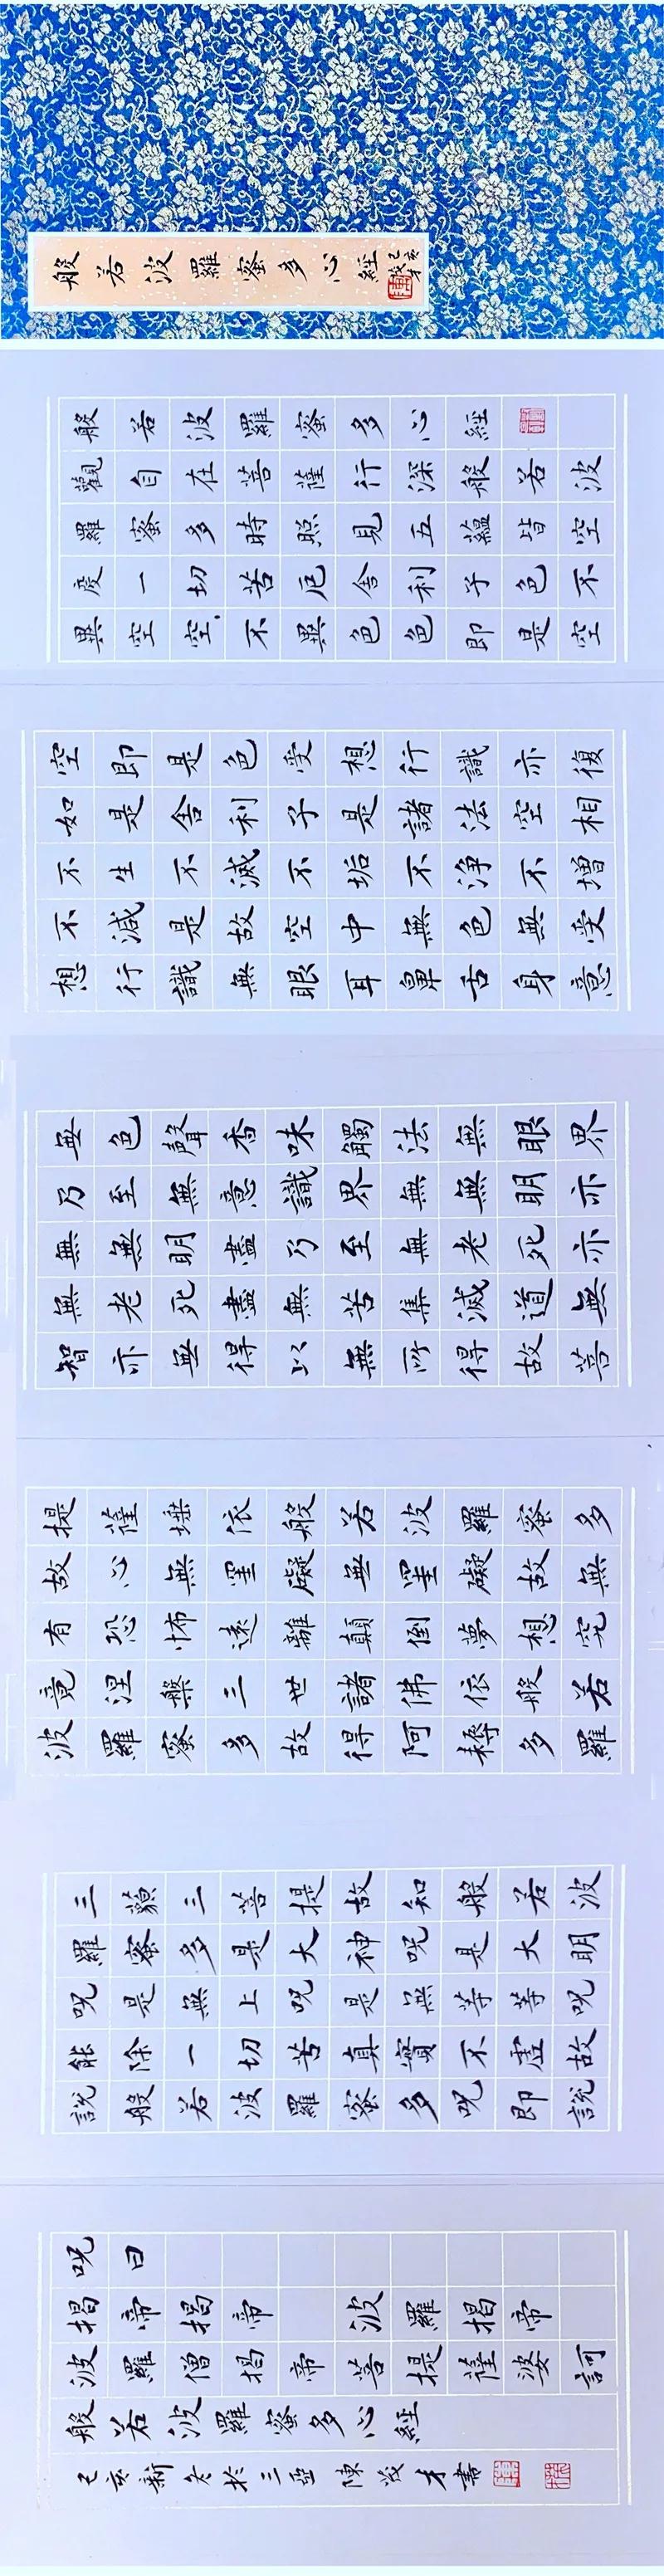 般若波羅蜜多心經
己亥
茂才
般若波羅蜜多心經
觀自在菩薩行深般若波
羅蜜多時照見五蘊皆空
度一切苦厄舍利子色不
異空空不異色色即是空
空即是色受想行識亦復
如是舍利子是諸法空相
不生不滅不垢不淨不增
不減是故空中無色無受
想行識無眼耳鼻舌身意
無色聲香味觸法無眼界
乃至無意識界無無明亦
無無明盡乃至無老死亦
無老死盡無苦集滅道無
智亦無得以無所得故菩
提薩埵依般若波羅蜜多
故心無罣礙無罣礙故無
有恐怖遠離顛倒夢想究
竟涅槃三世諸佛依般若
波羅蜜多故得阿耨多羅
三藐三菩提故知般若波
羅蜜多是大神呪是大明
呪是無上呪是無等等呪
能除一切苦真實不虛故
說般若波羅蜜多呪即說
呪曰
揭帝揭帝 波羅揭帝
波羅僧揭帝菩提薩婆訶
般若波羅蜜多心經
己亥新冬於三亞 陳茂才書